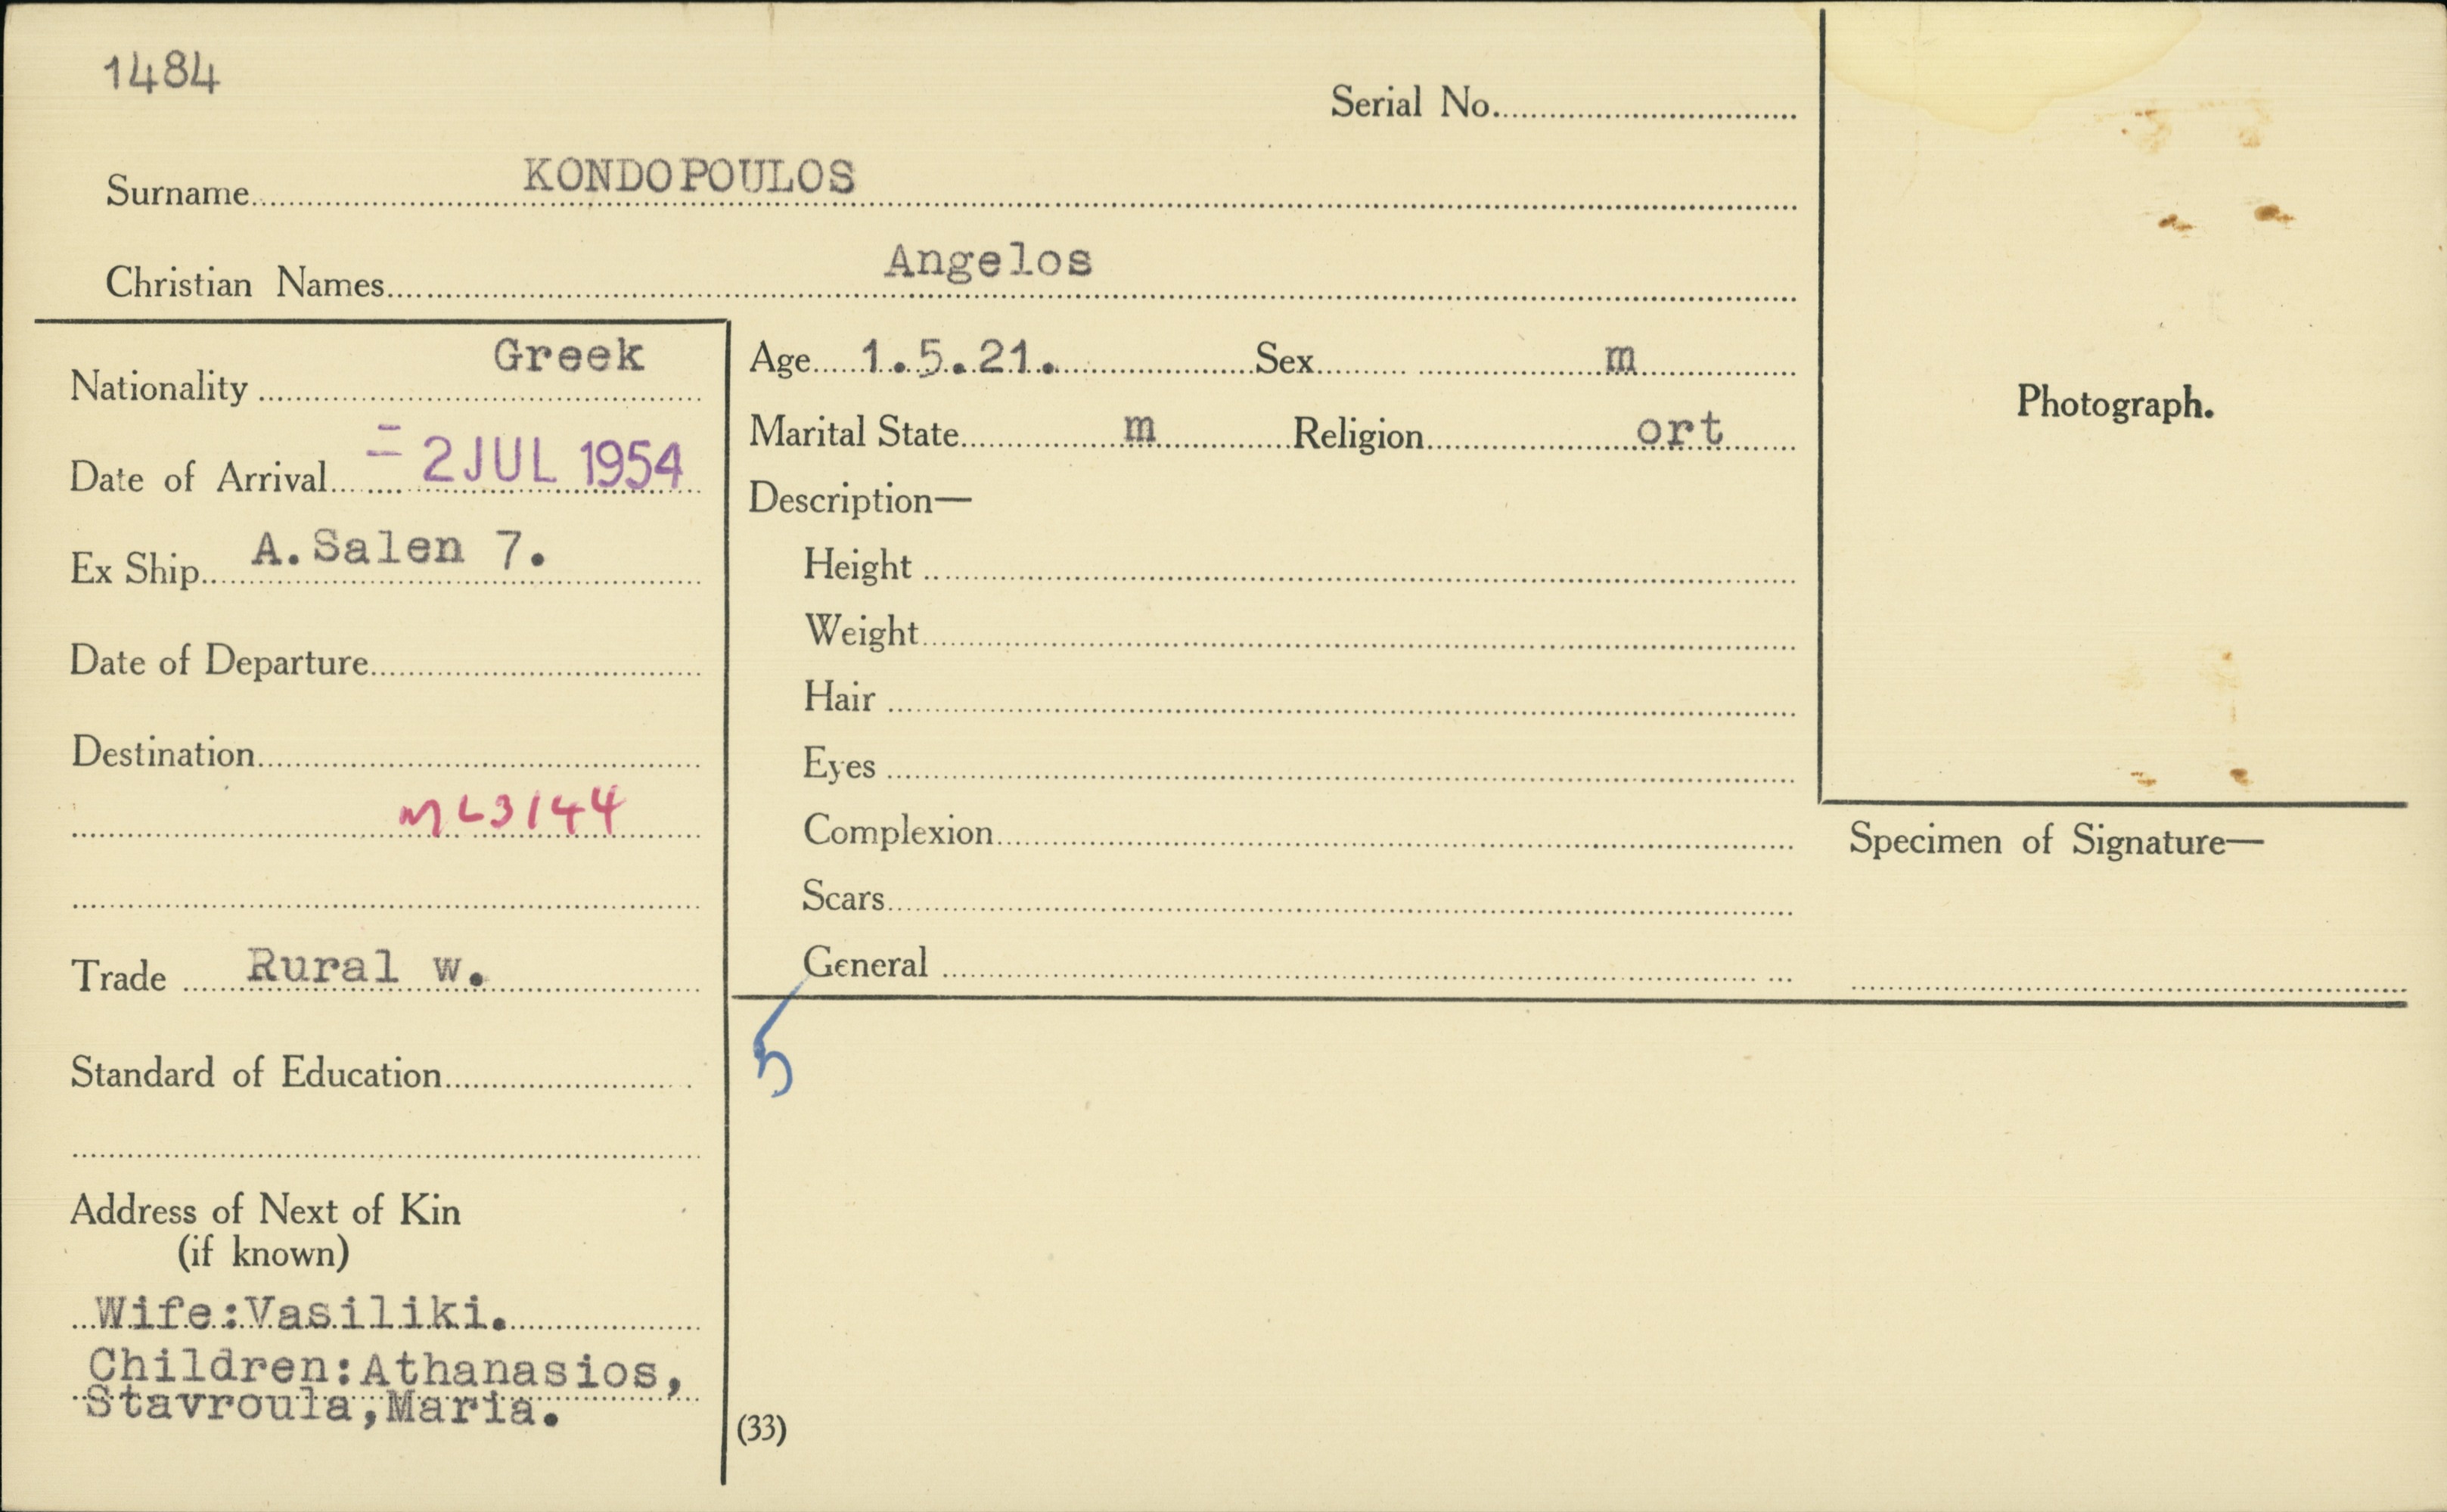 1484
Serial No.
Surname KONDOPOULOS
Christian Names Angelos
Nationality Greek
Date of Arrival = 2 JUL 1954
Ex Ship A.Salen 7.
Date of Departure
Destination
ML3144
Trade Rural w.
Standard of Education
Address of Next of Kin
(if known)
Wife:Vasiliki.
Children:Athanasios,
Stavroula,Maria.
Age 1.5.21. Sex m
Marital State m Religion ort
Description—
Height
Weight
Hair
Eyes
Complexion
Scars
General
5
(33)
Photograph.
Specimen of Signature—